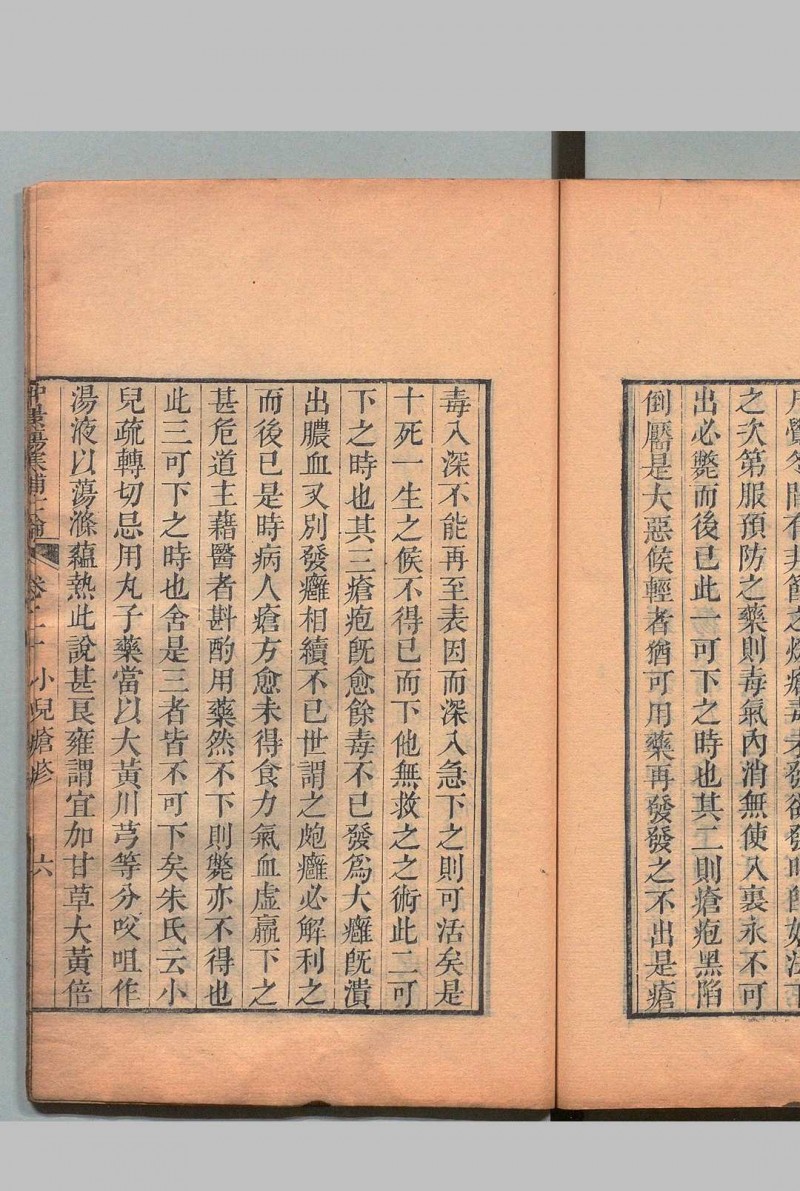 月覺冬間有
之次第服預防之藥則毒氣內消無使入裏永不可
出必斃而後已此一可下之時也其二則瘡疱黑陷
倒靨是大惡候輕者猶可用藥再發發之不出是瘡
毒入深不能再至表因而深入急下之則可活矣是
十死一生之候不得已而下他無救之之術此二可
下之時也其三瘡疱旣愈餘毒不已發爲大癰旣潰
出膿血又別發癰相續不已世謂之皰癰必解利之
而後已是時病人瘡方愈未得食力氣血虛羸下之
甚危道主藉醫者斟酌用藥然不下則斃亦不得也
此三可下之時也舍是三者皆不可下矣朱氏云小
兒疏轉切忌用丸子藥當以大黃川芎等分㕮咀作
湯液以蕩滌蘊熱此說甚良雍謂宜加甘草大黃倍
卷二十 小兒瘡疹 六